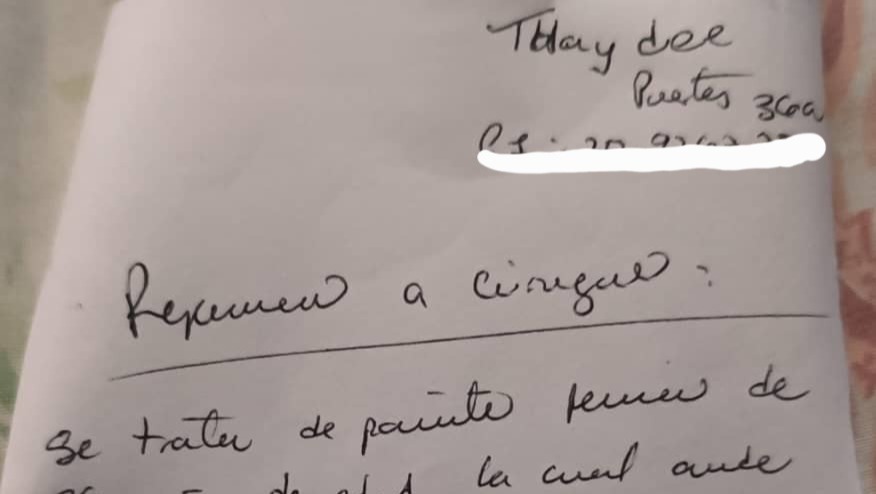 THaydee
Puertes 36a
Resumen a cirugía:
Se trata de paciente femenino de
de la cual acude